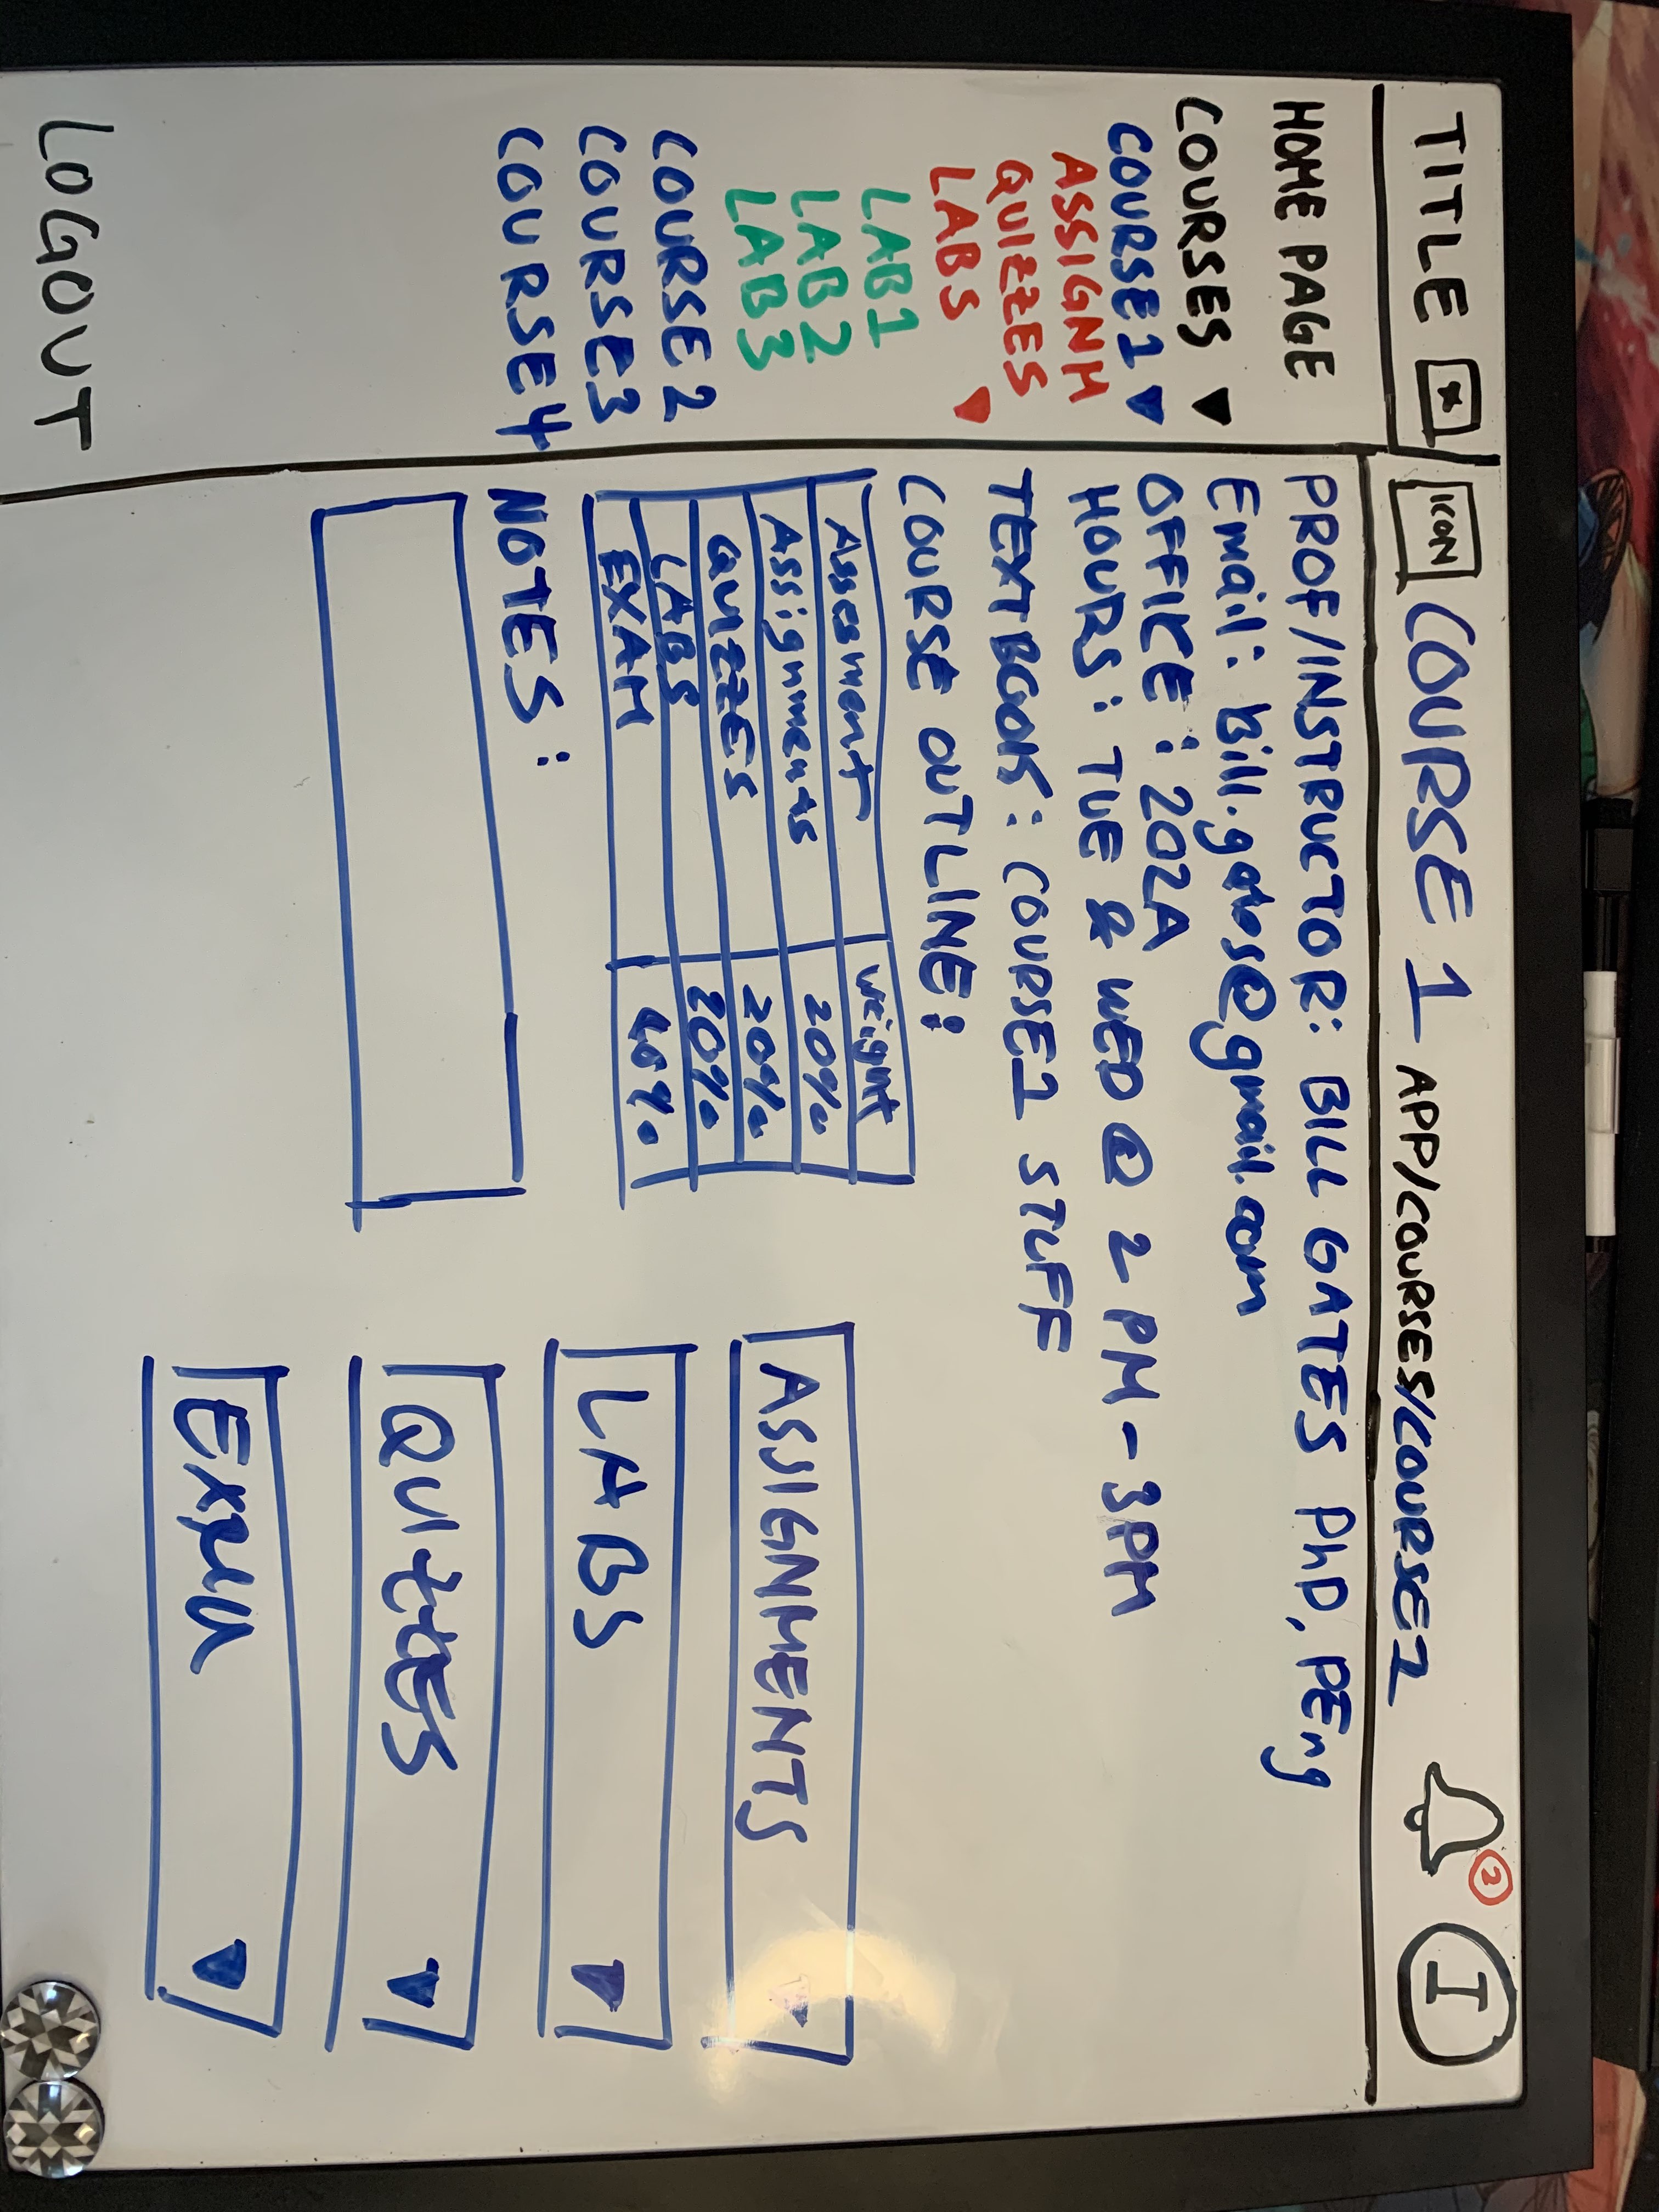 TITLE x
ICON COURSE 1 APP/COURSES/COURSE1
2
I
HOME PAGE
COURSES
COURSE1
ASSIGNM
QUIZZES
LABS
LAB1
LAB2
LAB3
COURSE2
COURSE3
COURSE4
LOGOUT
PROF/INSTRUCTOR: BILL GATES PhD, PEng
Email: Bill.gates@gmail.com
OFFICE : 202A
HOURS: TUE & WED @ 2 PM - 3PM
TEXTBOOK: COURSE1 STUFF
COURSE OUTLINE:
Assesment weight
Assignments 20%
QUIZZES 20%
LABS 20%
EXAM 40%
NOTES:
ASSIGNMENTS
LABS
QUIZZES
EXAM